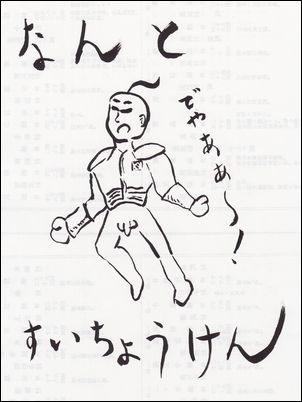 なんと
でやああ〜!
すいちょうけん